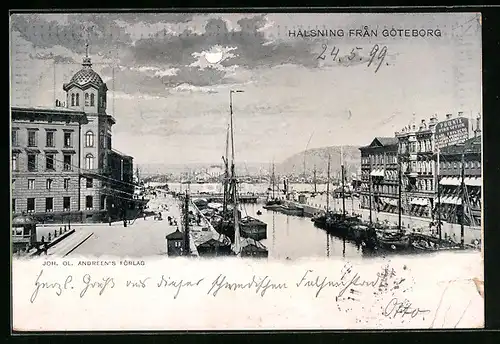 HÄLSNING FRÅN GÖTEBORG
24.5.99
JOH. OL. ANDREEN'S FÖRLAG
Herzl. Grüß aus dieser schwedischen
Otto